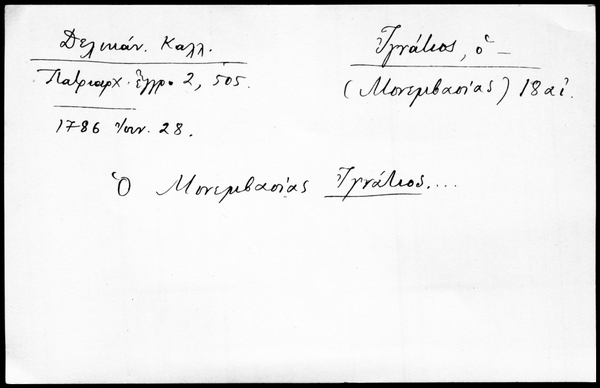 Δελικάν. Καλλ.
Πατριαρχ. Ἔγγρ. 2, 505.
1786 Ἰουν. 28.
Ἰγνάτιος, ὁ –
(Μονεμβασίας) 18 αἰ.
Ὁ Μονεμβασίας Ἰγνάτιος....